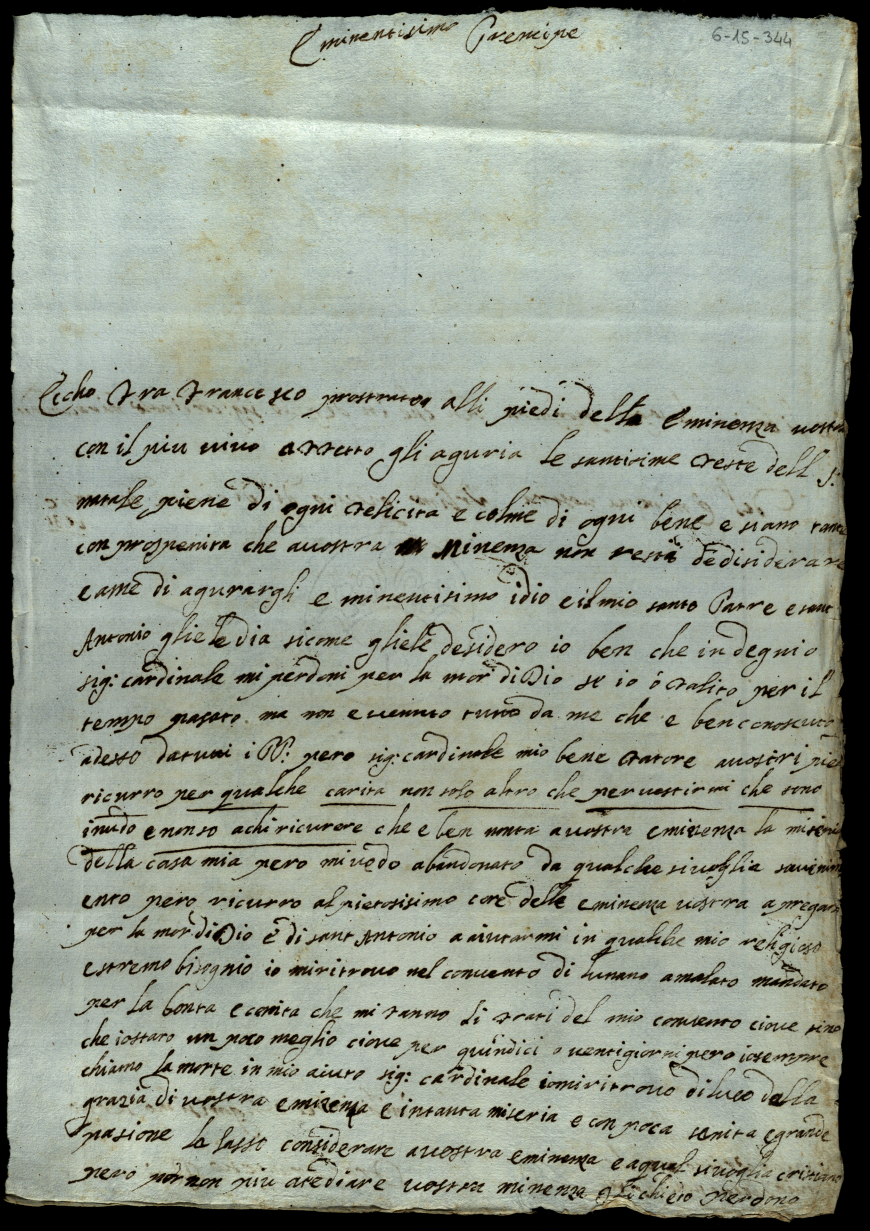 Eminentisimo Prencipe
6-15-344
Echo Fra Francesco prostrato alli piedi della Eminenza vostra
con il piu vivo affetto gli aguria le santisime feste dell S:
natale piene di ogni felicita e colme di ogni bene e siano tante
con prosperita che avostra Minenza non resti dedisiderare
e ame di agurargli e minentisimo idio e il mio santo Patre e sant
Antonio gliele dia sicome gliele desidero io ben che indegnio
sig: cardinale mi perdoni per la mor di Dio se io ó falito per il
tempo pasato ma non e venuto tutto da me che e ben conosciuto
adesso datuti i PP: pero sig: cardinale mio bene fatore avostri piedi
ricurro per qualche carita non solo altro che pervestirmi che sono
inudo e nonso achi ricurere che e ben nonta avostra eminenza la miseria
della casa mia pero mivedo abandonato da qualche sivoglia sovenim
ento pero ricurro al pietosisimo core delle eminenza vostra apregarla
per la mor di Dio é di sant Antonio a aiutarmi in qualche mio religioso
estremo bisognio io miritrovo nel convento di lunano amalato mandato
per la bonta e carita che mi fanno li frati del mio convento ciove sino
che iostaro un poco meglio ciove per quindici o ventigiorni pero iosempre
chiamo la morte in mio aiuto sig: cardinale iomiritrovo di luco della
grazia di vostra eminenza e intanta miseria e con poca sanita e grande
pasione lo lasso considerare avostra eminenza e aqual sivoglia cristiano
pero per non piu atediare vostra minenza gli chiedo perdono